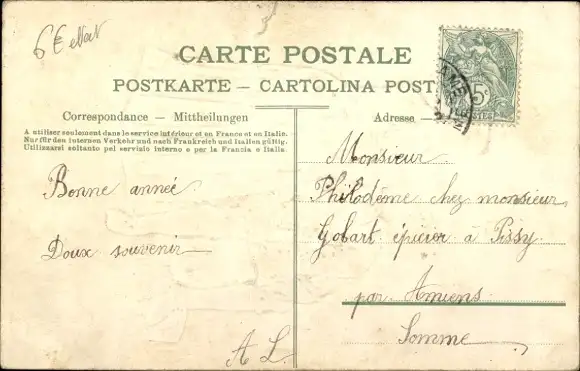 6 € état
CARTE POSTALE
POSTKARTE — CARTOLINA POST
5c
POSTES
Correspondance — Mittheilungen
A utiliser seulement dans le service intérieur et en France et en Italie.
Nur für den internen Verkehr und nach Frankreich und Italien gültig.
Utilizzarsi soltanto pel servizio interno o per la Francia e Italia
Bonne année
Doux souvenir
A L
Adresse —
Monsieur
Philodème chez monsieur
Gobart épicier à Pissy
par Amiens
Somme